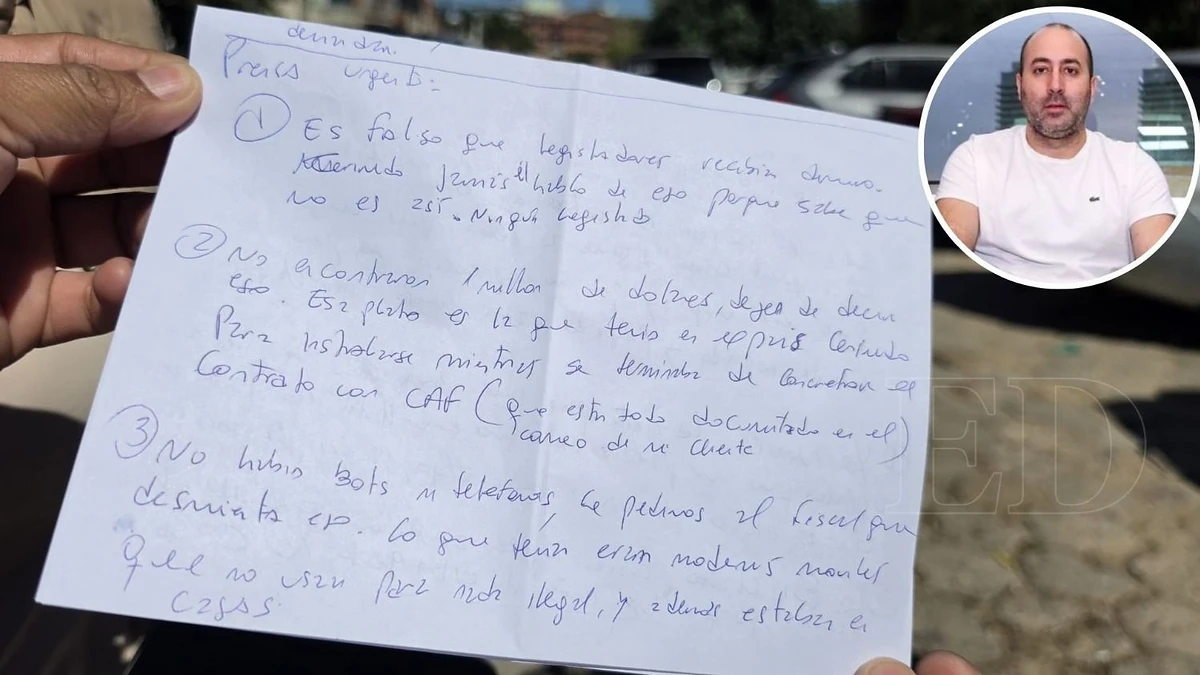 Prensa urgente:
① Es falso que legisladores recibían dinero.
Jamás él habló de eso porque sabe que
no es así. Ningún legislador
② No encontraron 1 millon de dolares, dejen de decir
eso. Esa plata es la que tenia en el país Cerimedo
Para instalarse mientras se terminaba de concretar el
Contrato con CAF (que esta todo documentado en el)
correo de mi cliente
③ No habia Bots ni telefonos, le pedimos al fiscal que
desmienta eso. Lo que tenia eran modems moviles
que no usan para nada ilegal, y ademas estaban en
cajas.
ED